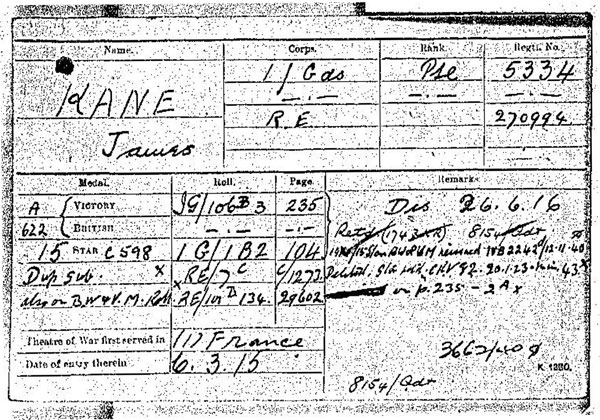 Name. Corps. Rank. Regtl. No.
KANE I/Gds Pte 5334
—.— —.— —.—
James R.E 270994
Medal. Roll. Page. Remarks.
A VICTORY IG/106B3 235 Dis 26.6.16
622 BRITISH —.— —.—
15 STAR C598 IG/1B2 104
Dup Sub. x x RE/7C C/1273
also on B.W & V.M. Roll RE/101B134. 29602 on p.235 - 2A x
Theatre of War first served in (1) France
Date of entry therein 6.3.15
K. 1380.
8154/Adt